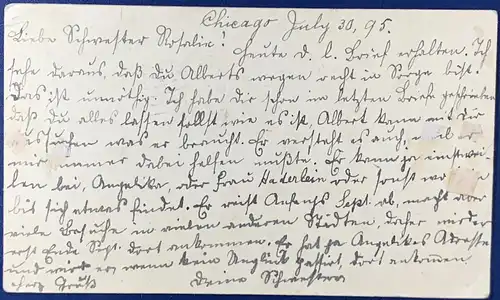 Chicago July 30, 95.
Liebe Schwester Rosalie! Heute d. l. Brief erhalten. Ich
sehe daraus, daß du Alberts wegen recht in Sorge bist.
Das ist unnöthig. Ich habe dir schon im letzten Briefe geschrieben
daß du alles lassen sollst wie es ist. Albert kann mit dir
aussuchen was er braucht. Er versteht es auch, weil er
mir immer dabei helfen mußte. Er kann ja einstwei-
len bei Angelika, oder Frau Haderlein oder sonst wo
bis sich etwas findet. Er reist Anfangs Sept. ab, macht aber
viele Besuche in vielen anderen Städten, daher wird er
erst Ende Sept. dort ankommen. Er hat ja Angelikas Adresse
und wird er, wenn kein Unglück passirt, dort ankommen
Gruß Deine Schwester